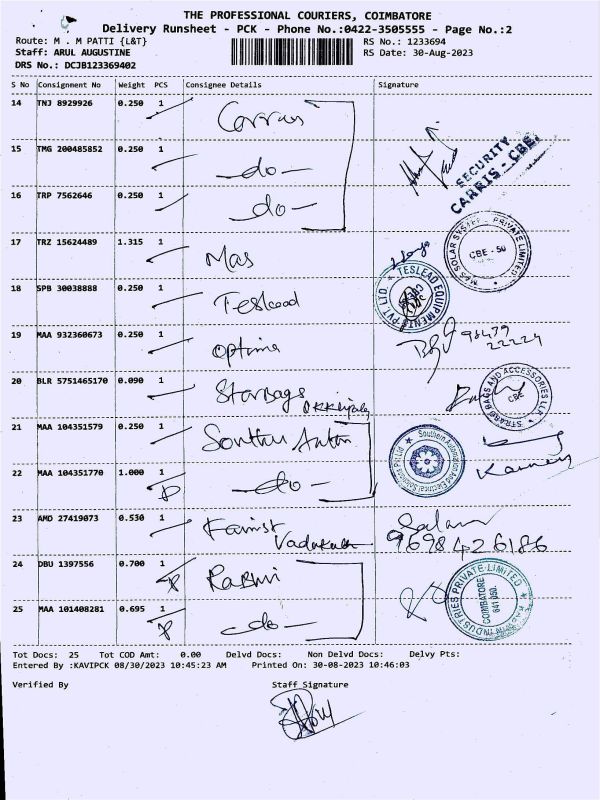 THE PROFESSIONAL COURIERS, COIMBATORE
Delivery Runsheet - PCK - Phone No.:0422-3505555 - Page No.:2
Route: M . M PATTI {L&T}
RS No.: 1233694
Staff: ARUL AUGUSTINE
RS Date: 30-Aug-2023
DRS No.: DCJB123369402
S No Consignment No Weight PCS Consignee Details Signature
14 TNJ 8929926 0.250 1
15 TMG 200485852 0.250 1 -do-
SECURITY
CARRIS - CBE.
16 TRP 7562646 0.250 1 -do-
17 TRZ 15624489 1.315 1 Mas
CBE - 50
18 SPB 30038888 0.250 1 Teslead
TESLEAD EQUIPMENTS PVT LTD
19 MAA 932360673 0.250 1 optima
98479
22224
20 BLR 5751465170 0.090 1 Starbags
STRABO BAGS AND ACCESSORIES LLP
CBE
21 MAA 104351579 0.250 1
Southern Automation and Electrical Solution Pvt Ltd
22 MAA 104351770 1.000 1 -do-
23 AMD 27419073 0.530 1
9698426186
24 DBU 1397556 0.700 1
INDUSTRIES PRIVATE LIMITED
COIMBATORE
25 MAA 101408281 0.695 1 -do-
Tot Docs: 25 Tot COD Amt: 0.00 Delvd Docs: Non Delvd Docs: Delvy Pts:
Entered By :KAVIPCK 08/30/2023 10:45:23 AM Printed On: 30-08-2023 10:46:03
Verified By Staff Signature